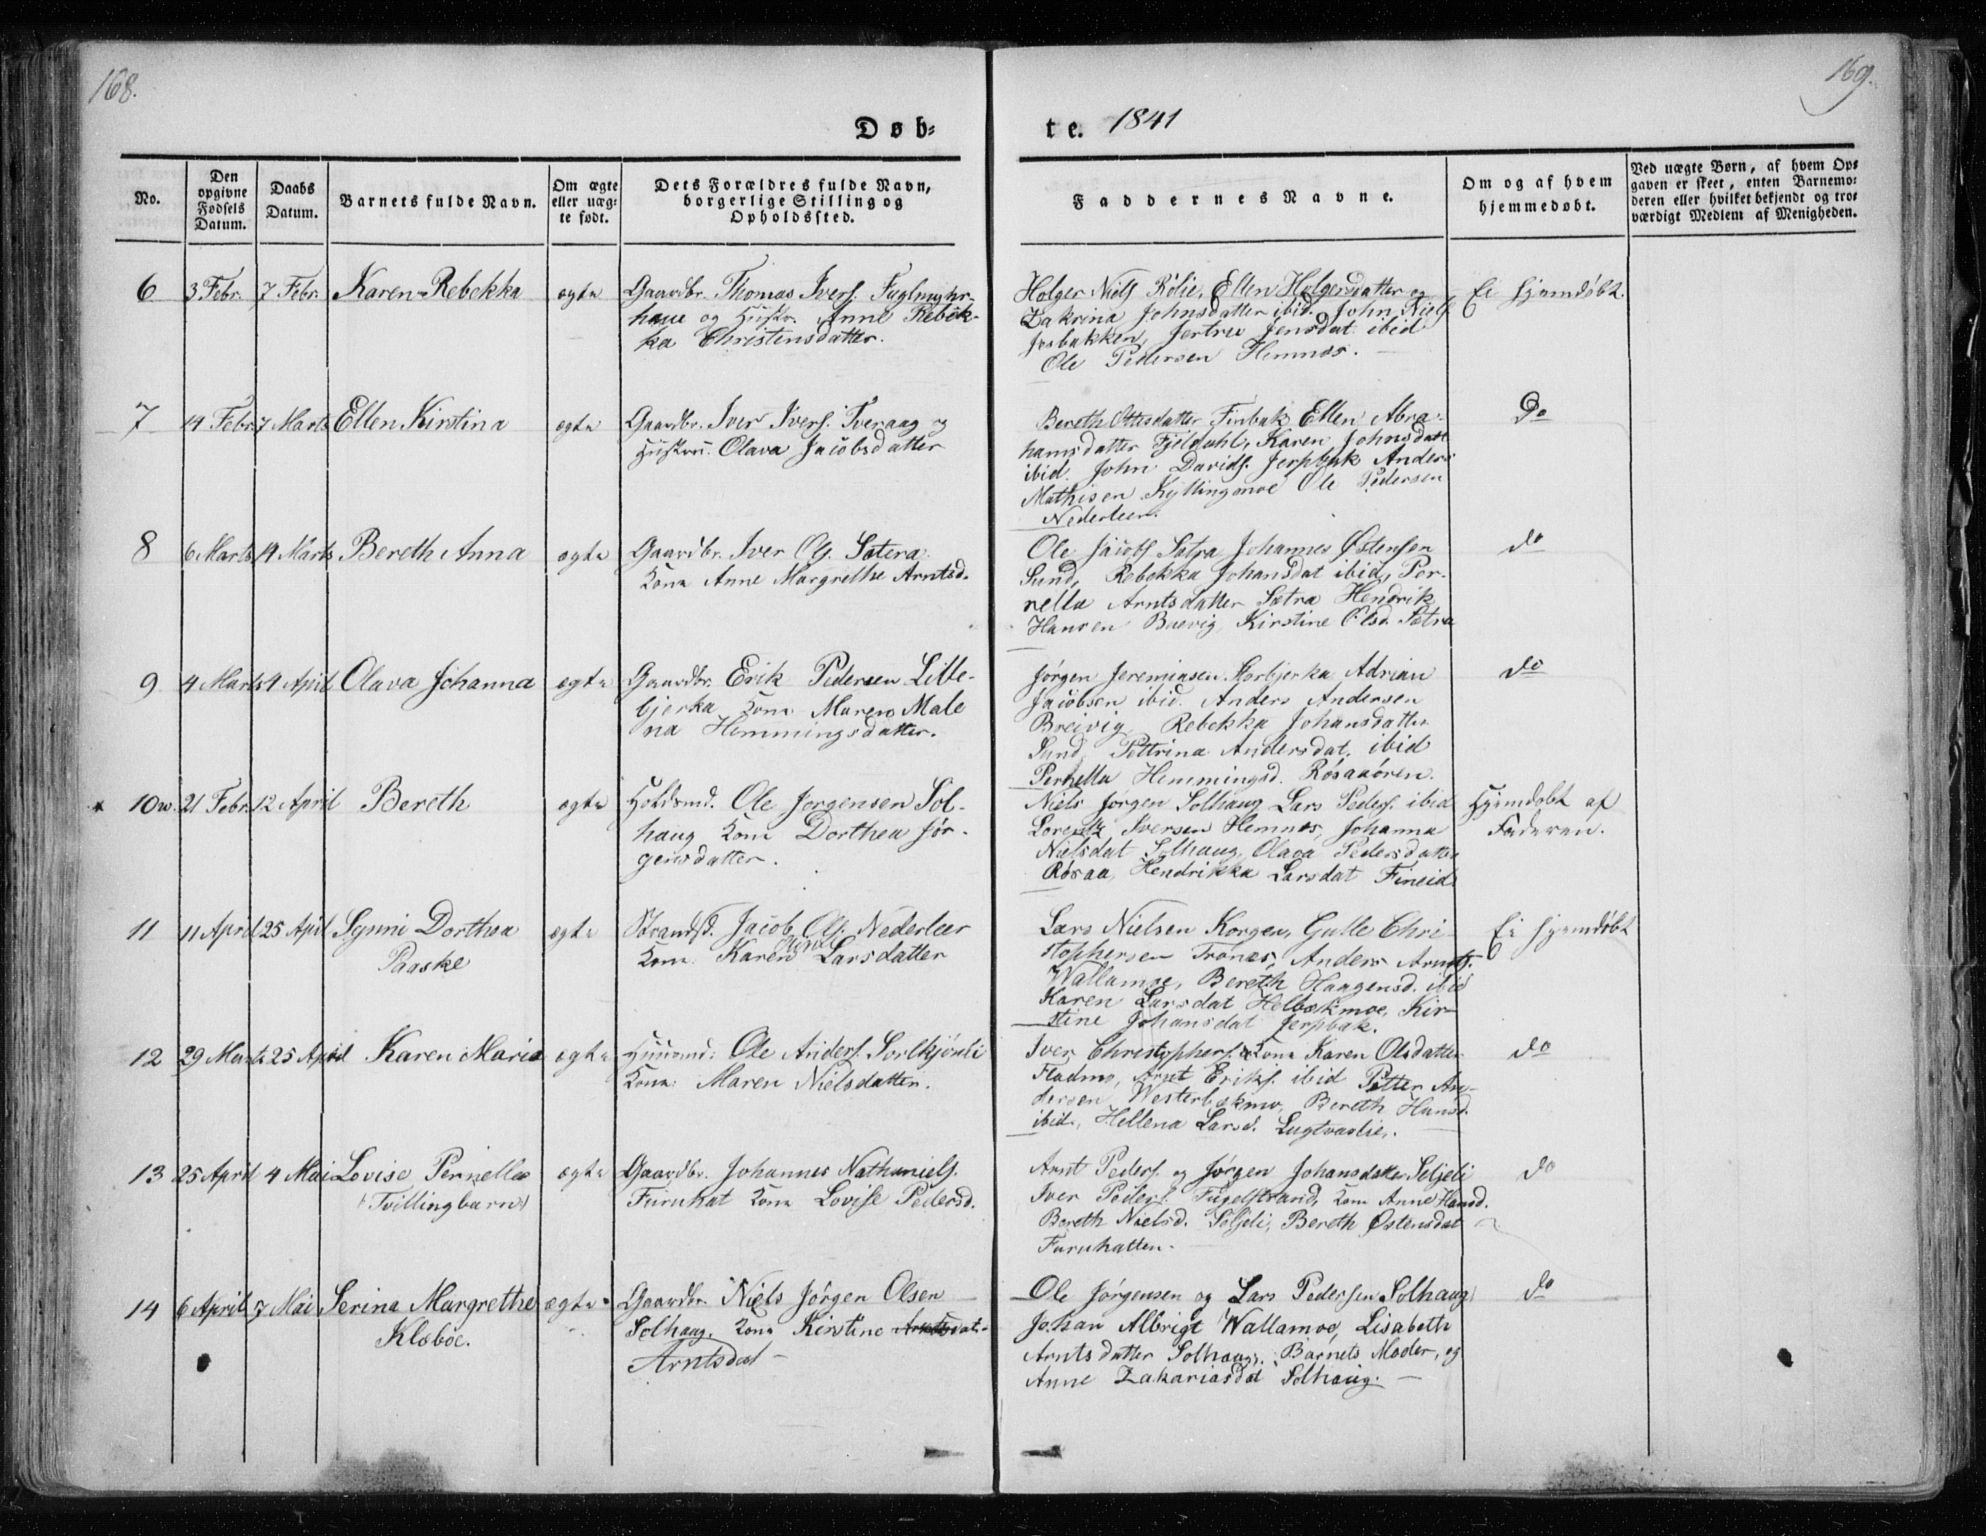 168.
169.
Døb-
te. 1841
No.
Den opgivne Fødsels Datum.
Daabs Datum.
Barnets fulde Navn.
Om ægte eller uægte født.
Dets Forældres fulde Navn, borgerlige Stilling og Opholdssted.
Faddernes Navne.
Om og af hvem hjemmedøbt.
Ved uægte Børn, af hvem Opgaven er skeet, enten Barnemoderen eller hvilket bekjendt og troværdigt Medlem af Menigheden.
6 3 Febr. 7 Febr. Karen Rebekka ægte
Gaardbr. Thomas Ivers.
og Hustr. Anne Rebek-
ka Christensdatter.
Holger Niels Rølie, Ellen Holgersdatter og
Zakrina Johnsdatter ibid. John Niels
Jensdat ibid
Ole Pedersen Hemnes.
Ei Hjemdøbt.
7 14 Febr 7 Marts Ellen Kirstina ægte
Gaardbr. Iver Ivers. Tveraag og
Hustru. Olava Jacobsdatter
Bereth Ottesdatter Finbak Ellen Abra-
hamsdatter Fjeldahl, Karen Johnsdatt
ibid. John Davids. Jerpbak Anders
Mathisen Kyllingmoe Ole Pedersen
Nederleer.
Do
8 6 Marts 14 Marts Bereth Anna ægte
Gaardbr. Iver Ols. Sætera
Kone Anne Margrethe Arntsd.
Ole Jacobs Sætra Johannes Østensen
Sund, Rebekka Johansdat ibid, Per-
nella Arntsdatter Sætra Hendrik
Hansen Buevig, Kirstine Olsd. Sætra
do
9 4 Marts 4 April Olava Johanna ægte
Gaardbr. Erik Pedersen Lille-
bjerka Kone Maren Male
na Hemmingsdatter.
Jørgen Jeremiasen Storbjerka Adrian
Jacobsen ibid. Anders Andersen
Breivig Rebekka Johansdatter
Sund, Pettrina Andersdat. ibid
Pernella Hemmingsd. Røsaaøren.
do
10 21 Febr. 12 April Bereth ægte
Holdsmd. Ole Jørgensen Sol-
haug Kone Dorthea Jør-
gensdatter.
Niels Jørgen Solhaug Lars Peders. ibid
Lorentz Iversen Hemnes, Johanna
Nielsdat Solhaug, Olava Pedersdatter
Røsaa, Hendrikka Larsdat Fineid
Hjemdøbt af
Faderen.
11 11 April 25 April Synni Dorthea ægte
Paaske
Strands. Jacob Ols. Nederleer
Kone Karen Larsdatter
Lars Nielsen Korgen, Gulle Chri
stophersen Tronæs, Anders Arnts.
Wallamoe, Bereth Haagensd. ibid
Karen Larsdat Helbekmoe, Kir-
stine Johansdat Jerpbak.
Ei Hjemdøbt
12 29 Marts 25 April Karen Marie ægte
Huusmd. Ole Anders.
Kone Maren Nielsdatter.
Iver Christophers. & Kone Karen Olsdatter
Fladmo, Arnt Eriks. ibid Petter An-
dersen Westerbekmo, Bereth Hansd.
ibid, Hellena Larsd. Lugtvaslie.
do
13 25 April 4 Mai Lovise Pernella ægte
(Tvillingbarn)
Gaardbr. Johannes Nathaniels.
Furuhat Kone Lovise Pedersd.
Arnt Peders. og Jørgen Johansdatter Seljeli
Iver Peders. Fugelstrand, Kone Anne Hansd.
Bereth Nielsd. Seljeli, Bereth Østensdat
Furuhatten.
do
14 6 April 7 Mai Serina Margrethe ægte
Klæboe.
Gaardbr. Niels Jørgen Olsen
Solhaug. Kone Kirstine Arntsdat-
Arntsdat
Ole Jørgensen og Lars Pedersen Solhaug
Johan Albrigt Wallamoe, Lisabeth
Arntsdatter Solhaug, Barnets Moder, og
Anne Zakariasdat Solhaug.
do